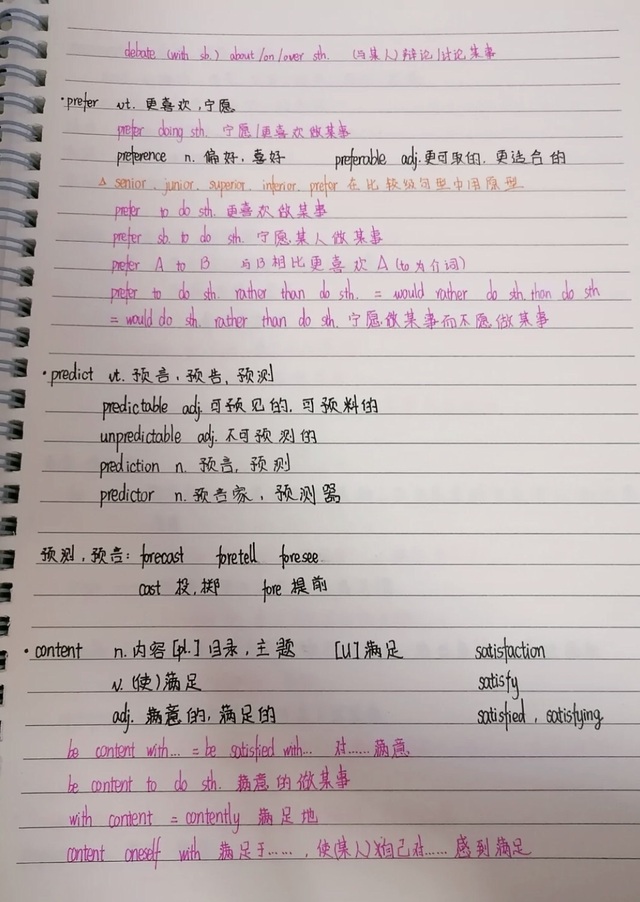 debate (with sb.) about/on/over sth. (与某人)辩论/讨论某事
·prefer vt. 更喜欢,宁愿
prefer doing sth. 宁愿/更喜欢做某事
preference n. 偏好,喜好 preferable adj.更可取的.更适合的
△ senior. junior. superior. inferior. prefer 在比较级句型中用原型
prefer to do sth. 更喜欢做某事
prefer sb. to do sth. 宁愿某人做某事
prefer A to B 与B相比更喜欢A(to为介词)
prefer to do sth. rather than do sth. = would rather do sth. than do sth
= would do sth. rather than do sth. 宁愿做某事而不愿做某事
·predict vt. 预言,预告,预测
predictable adj.可预见的,可预料的
unpredictable adj.不可预测的
prediction n. 预言,预测
predictor n.预告家,预测器
预测,预言: forecast foretell foresee
cast 投,掷 fore 提前
·content n.内容[pl.]目录,主题 [U]满足 satisfaction
v.(使)满足 satisfy
adj. 满意的,满足的 satisfied, satisfying
be content with... = be satisfied with... 对……满意
be content to do sth. 满意的做某事
with content = contently 满足地
content oneself with 满足于……,使(某人)自己对……感到满足